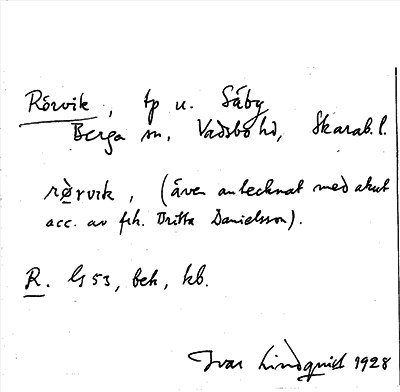 Rörvik, tp u. Säby
Berga sn, Vadsbo hd, Skarab. l.
rø̀rvik, (även antecknat med akut
acc. av frk. Britta Danielsson).
R. G 53, beh, kb.
Ivar Lindquist 1928